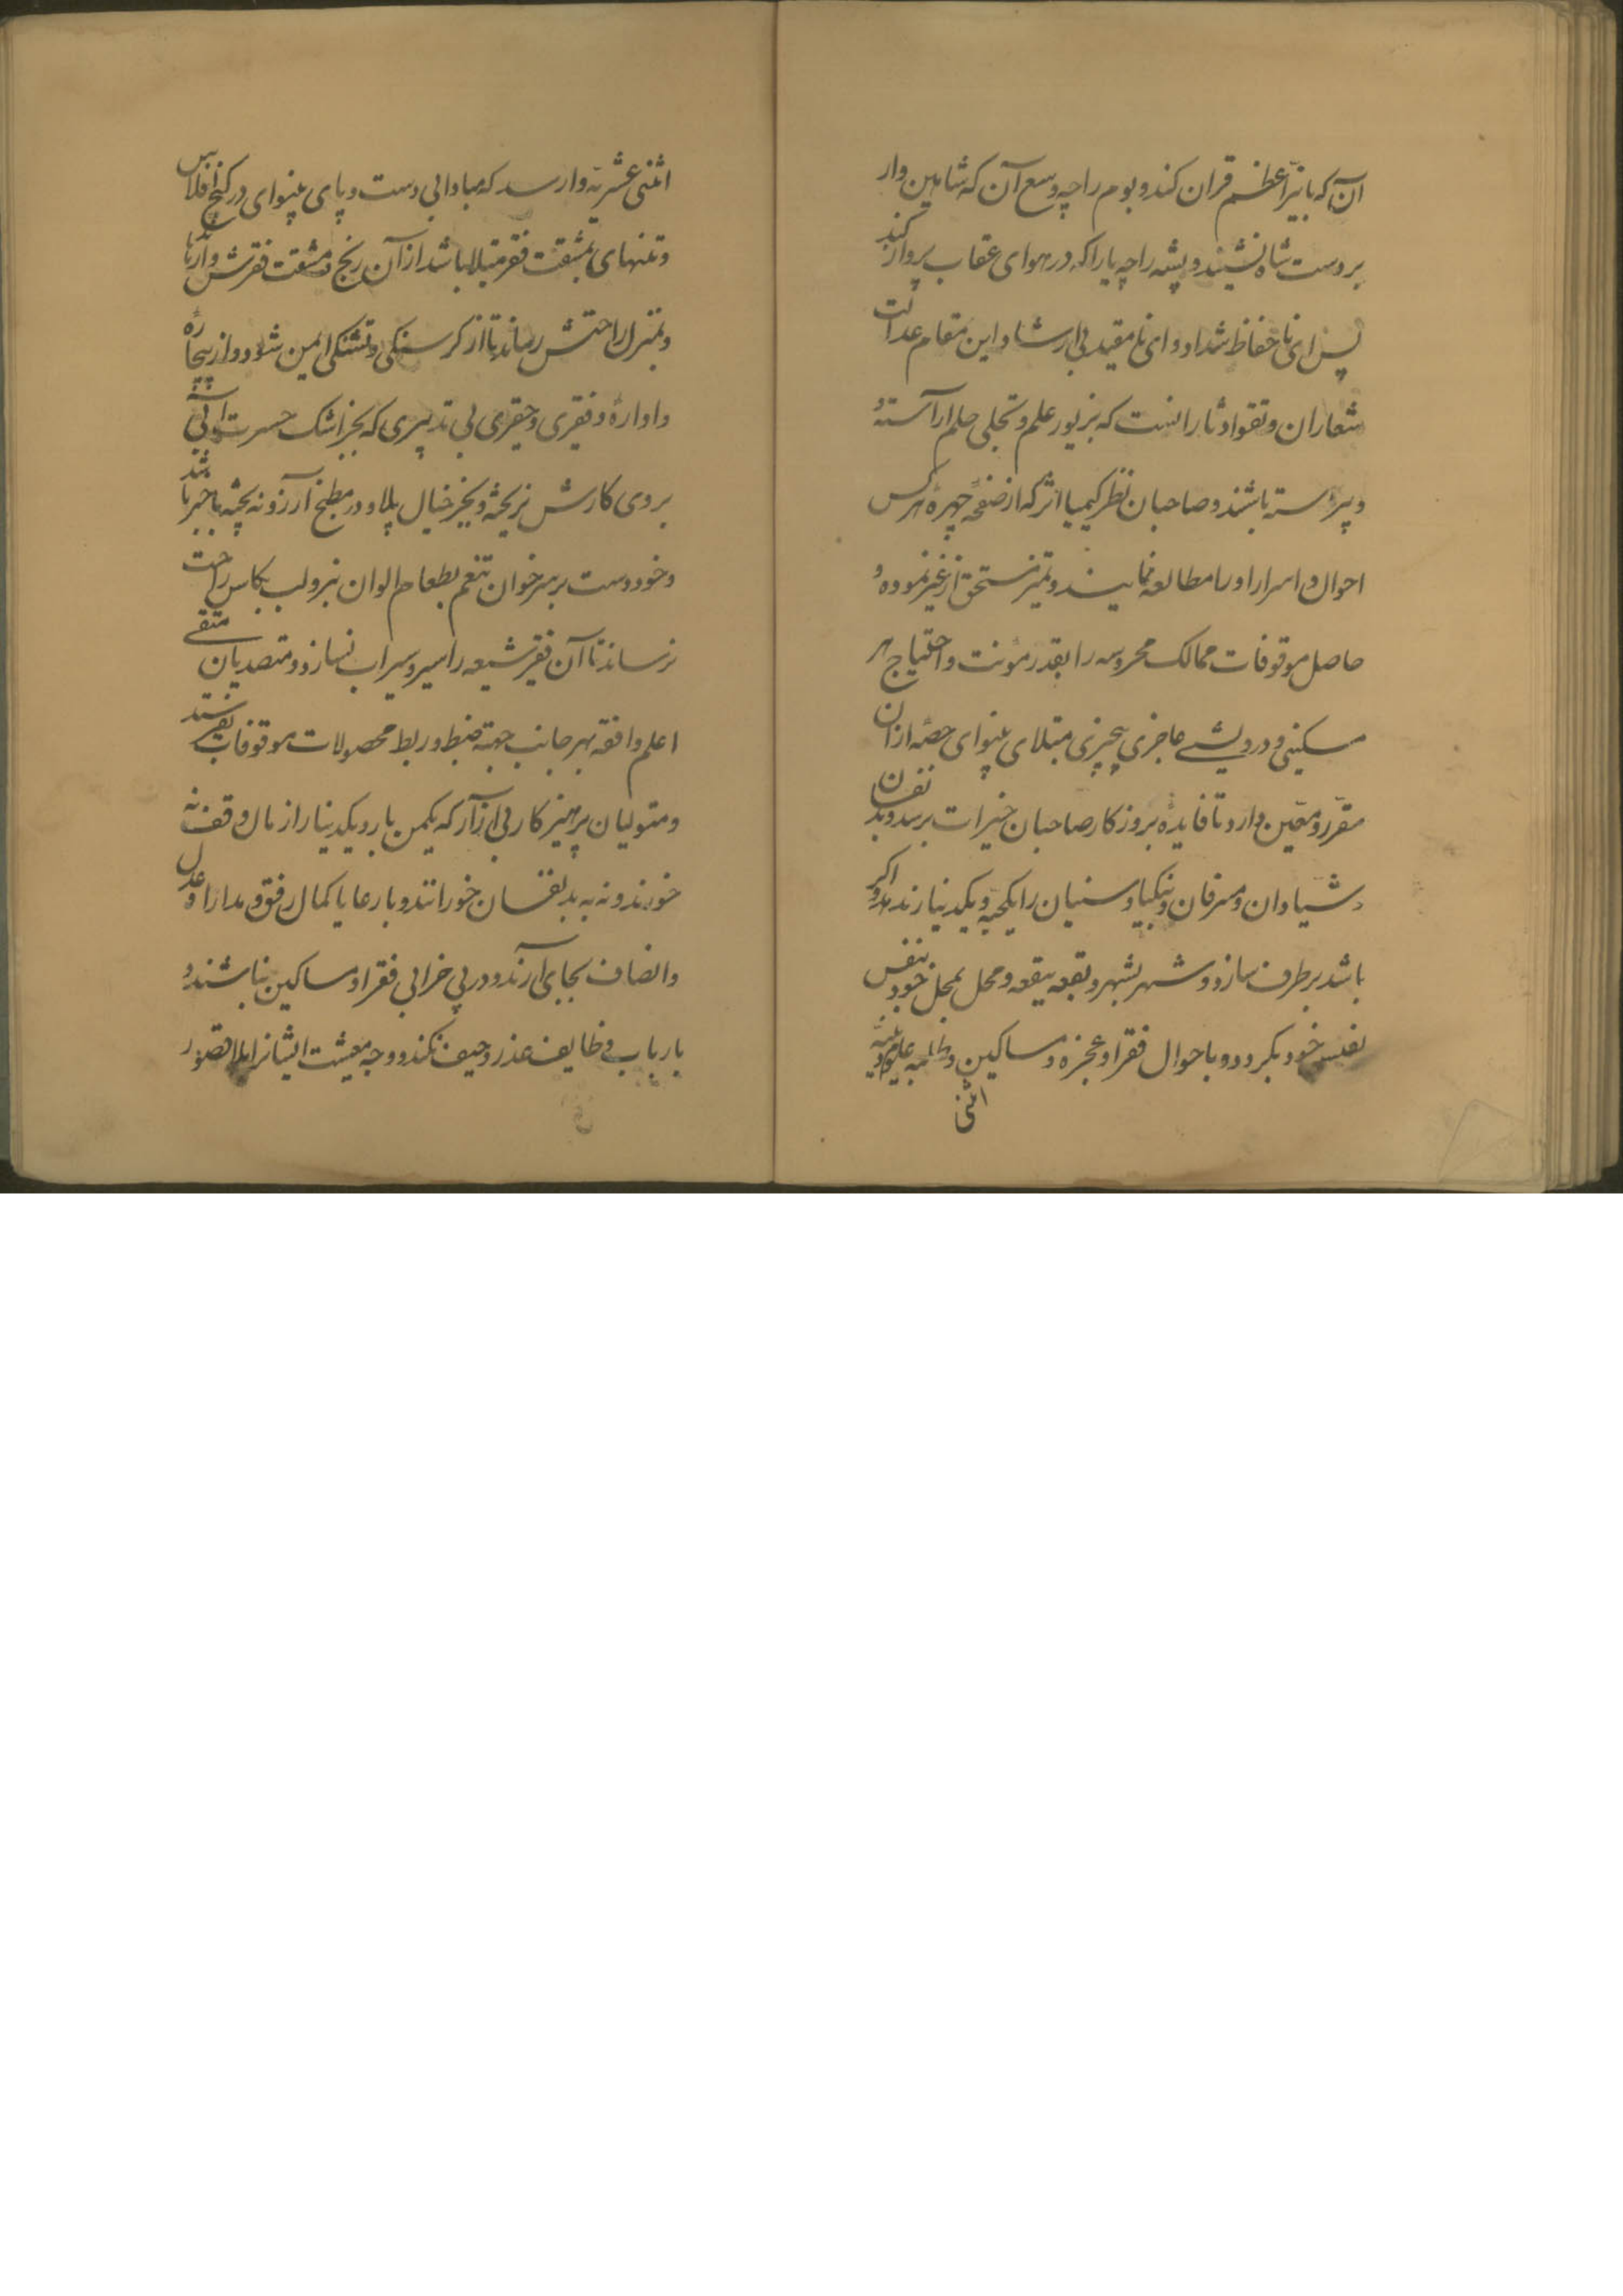 آن که با نیّر اعظم قران کند و بوم را چه وسع آن که شاهین وار
بر دست شاه نشیند و پشه را چه یارا که در هوای عقاب پرواز کند
پس ای نا حفاظ شداد و ای نا مقید بی ارشاد این مقام عدالت
شعاران و تقوا دثارانست که بزیور علم و تحلی حلم آراسته
و پیراسته باشند و صاحبان نظر کیمیا اثر که از صفحه چهره هر کس
احوال و اسرار او را مطالعه نمایند و تمیز مستحق از غیر نموده و
حاصل موقوفات ممالک محروسه را بقدر مؤنت و احتیاج هر
مسکینی و درویشی عاجزی بیچیزی مبتلای بینوای حصّه از آن
مقرّر و معیّن دارد تا فایده بروزکار صاحبان خیرات برسد و بد نفسان
و شیادان و مسرفان و سنیان را یکحبه و یکدینار ندهد و اکر
باشد بر طرف سازد و شهر بشهر و بقعه ببقعه و محل بمحل خود بنفس
نفیس خود بکردد و باحوال فقرا و عجزه و مساکین و طلبه علوم دینیّه
اثنی
اثنی عشریّه وارسد که مبادا بی دست و پای بینوای در کنج افلاس
و تنهای بمشقت فقر مبتلا باشد از آن رنج و مشقت فقرش وارهاند
و بمنزل راحتش رساند تا از کرسنکی و تشنکی ایمن شود و از بیچاره
و اواره و فقیری و حقیری بی تدبیری که بجز اشک حسرت آبی
بر روی کارش نریخته و بجز خیال پلاو در مطبخ آرزو نه پخته با خبر باشد
و خود دست بر سر خوان تنعم بطعام الوان نبرد و لب بکاس راحت
نرساند تا آن فقیر شیعه را سیر و سیراب نسازد و متصدیان متقی
اعلم و افقه بهر جانب جهة ضبط و ربط محصولات موقوفات بفرستد
و متولیان پرهیزکار بی آزار که یکمن بار و یکدینار از مال وقف نه
خورند و نه به بد نفسان خورانند و با رعایا کمال رفق و مدارا و عدل
و انصاف بجای آرند و در پی خرابی فقرا و مساکین نباشند و
با رباب وظایف عذر و حیف نکند و وجه معیشت ایشانرا بلا قصور